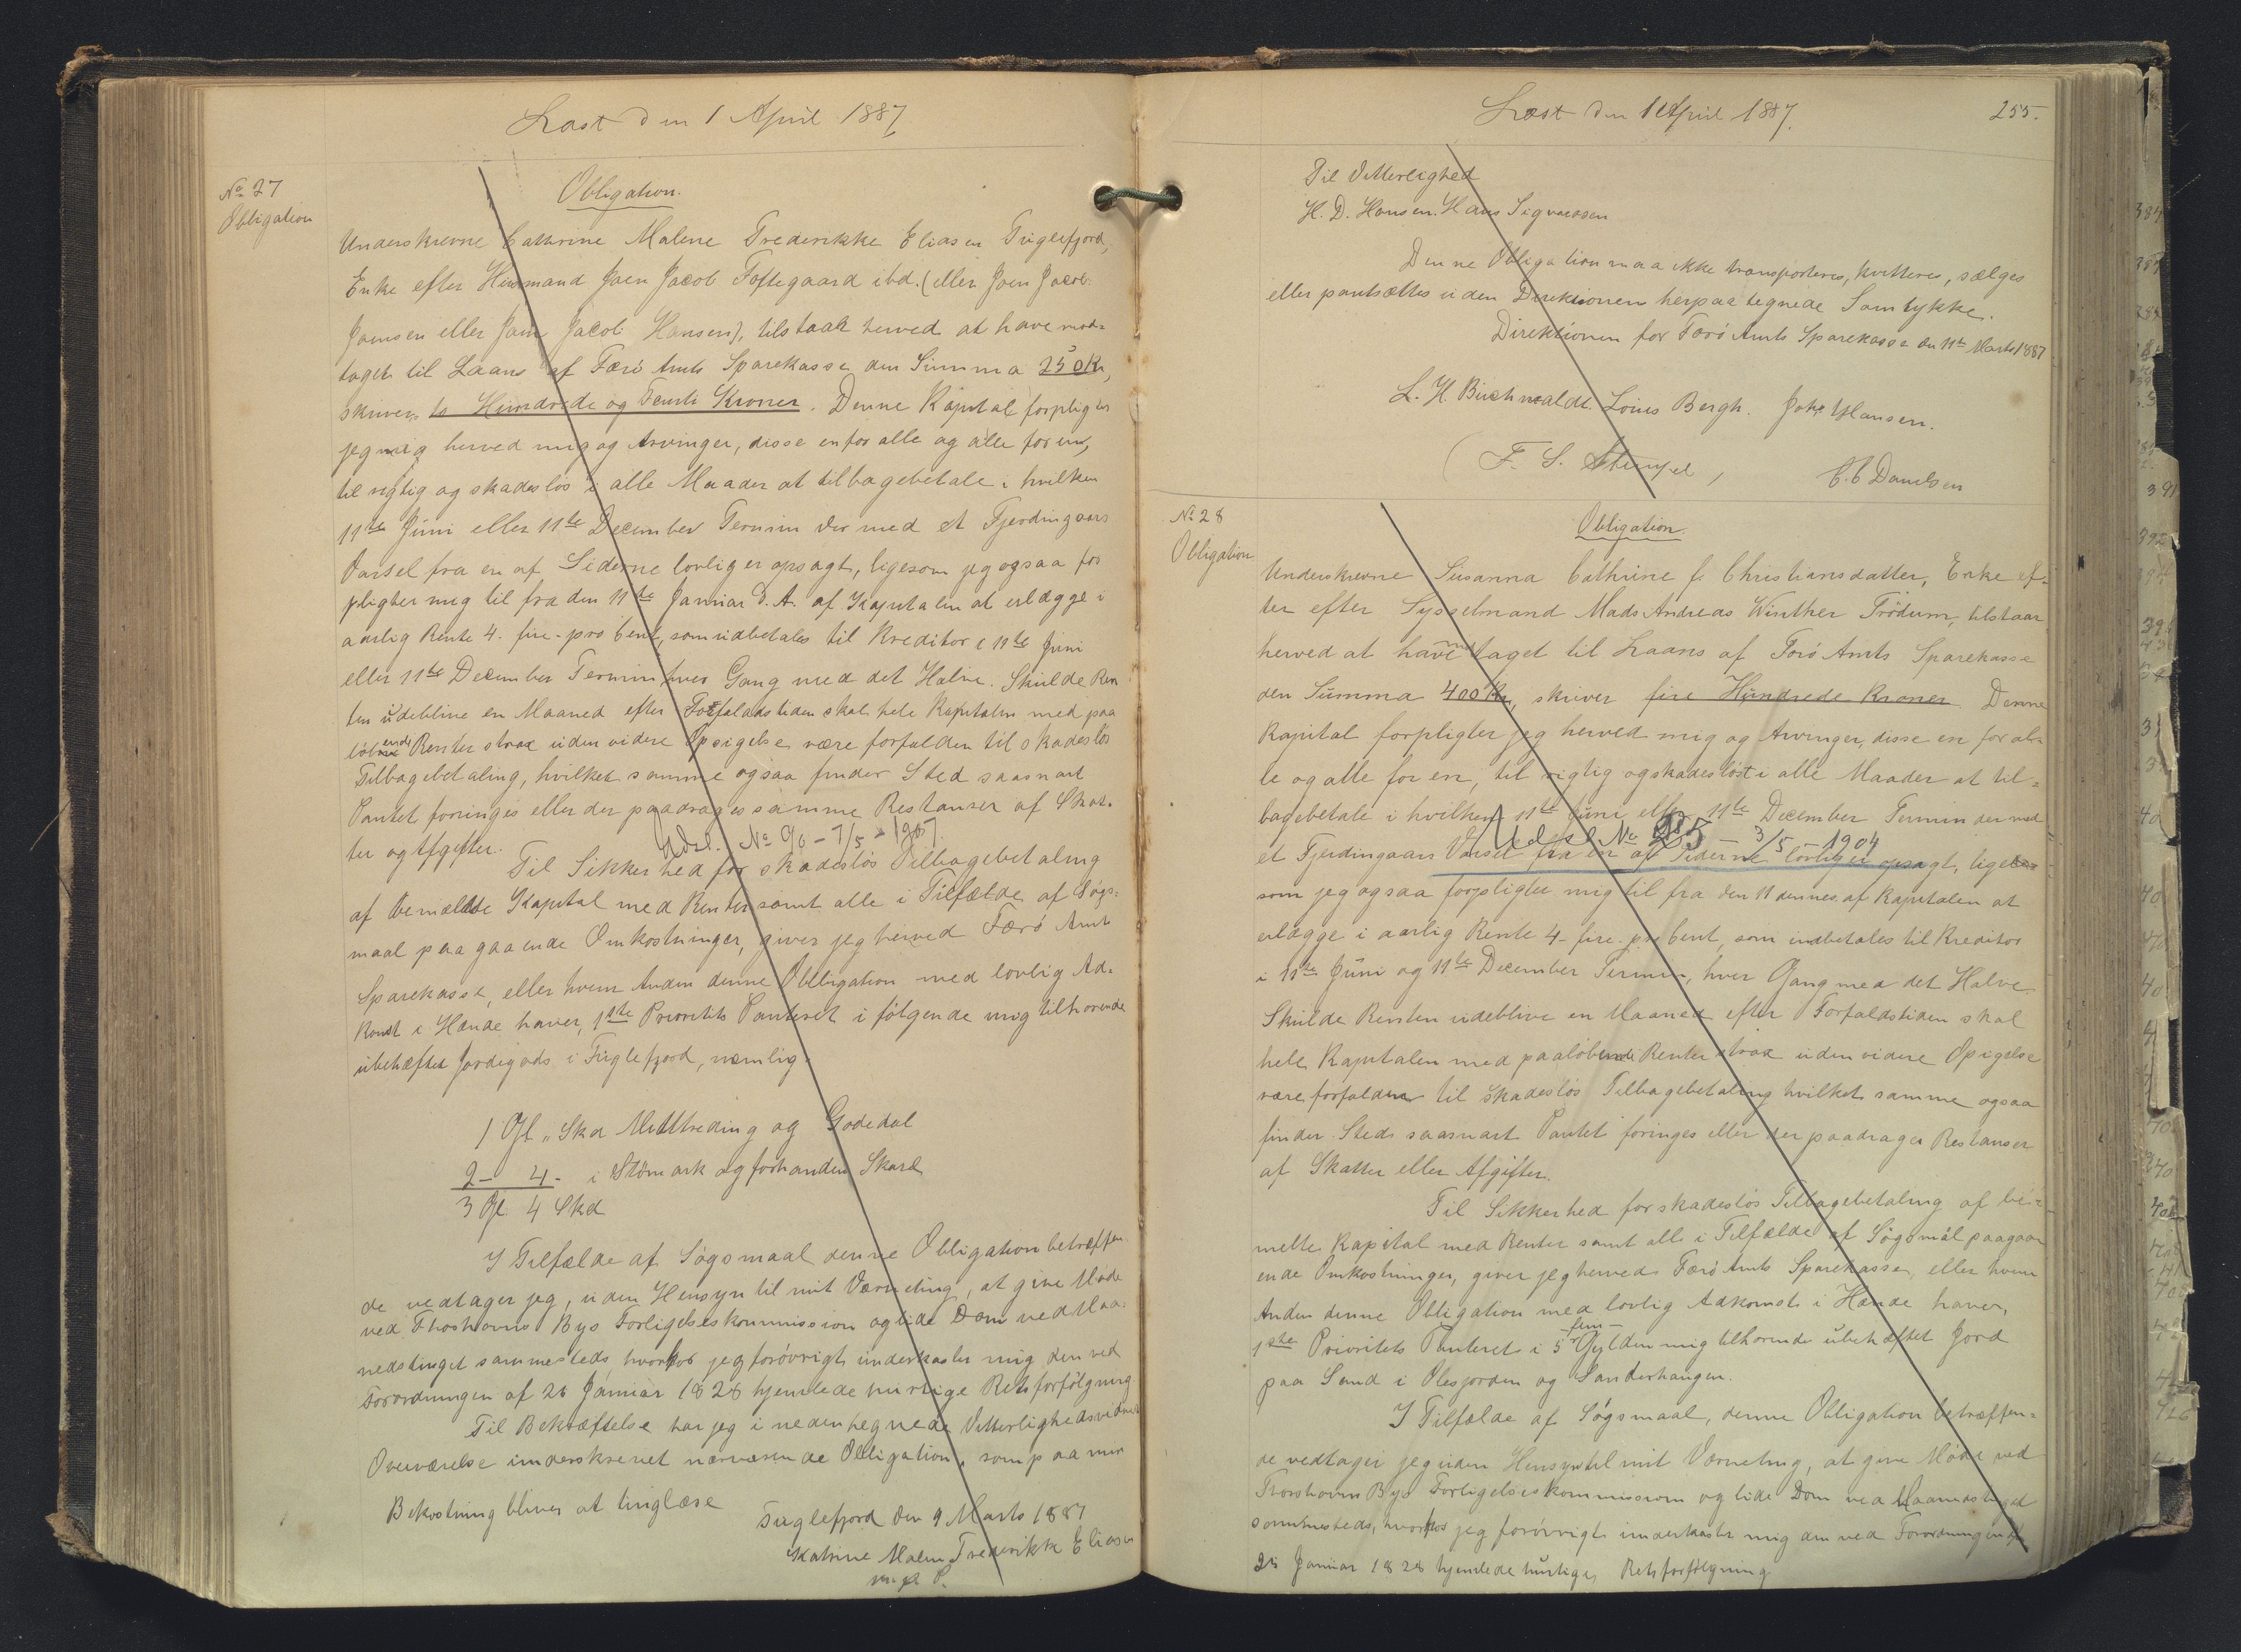 Læst den 1 April 1887
No 27
Obligation
Obligation.
Underskrevne Cathrine Malene Frederikke Eliasen Fuglefjord,
Enke efter Huusmand Joen Jacob Toftegaard ibd. (eller Joen Jacob
Joensen eller Joen Jacob Hansen), tilstaar herved at have mod-
taget til Laans af Færö Amts Sparekasse den Summa 250 Kr,
skriver to Hundrede og Femti Kroner. Denne Kapital forpligter
jeg mig herved mig og Arvinger, disse en for alle og alle for en,
til rigtig og skadeslös i alle Maader at tilbagebetale i hvilken
11te Juni eller 11te December Termin der med et Fjerdingaars
Varsel fra en af Siderne lovlig er opsagt, ligesom jeg ogsaa for
pligter mig til fra den 11te Januar d. A. af Kapitalen at erlægge i
aarlig Rente 4 - fire - pro Cent, som udbetales til Kreditor i 11te Juni
eller 11te December Termin hver Gang med det Halve. Skulde Ren
ten udeblive en Maaned efter Forfaldstiden skal hele Kapitalen med paa
löbende Renter strax uden videre Opsigelse være forfalden til skadeslös
Tilbagebetaling, hvilket samme ogsaa finder Sted saasnart
Pantet forringes eller der paadrages samme Restanser af Skat-
ter og Afgifter.
Udsl. No 96 - 7/5 - 1907.
Til Sikkerhed for skadeslös Tilbagebetaling
af bemeldte Kapital med Renter samt alle i Tilfælde af Sögs-
maal paagaaende Omkostninger, giver jeg herved Færö Amts
Sparekasse, eller hvem Anden denne Obligation med lovlig Ad-
komst i Hænde haver, 1ste Prioritets Panteret i fölgende mig tilhörende
ubehæftet Jordegods i Fuglefjord, nemlig
1 Gl " Skd Midtreding og Godedal
2 - 4 - i Stömark og forhanden Skard
3 Gl 4 Skd
I Tilfælde af Sögsmaal denne Obligation betræffen
de vedtager jeg, uden Hensyn til mit Værneting, at give Möde
ved Thorshavns Byes Forligelseskommission og lide Dom ved Maa-
nedstinget sammesteds, hvorhos jeg forövrigt underkaster mig den ved
Forordningen af 26 Januar 1828 hjemlede hurtige Retsforfölgning
Til Bekræftelse har jeg i nedentegnede Vitterlighedsvidners
Overværelse underskrevet nærværende Obligation, som paa min
Bekostning bliver at tinglæse
Fuglefjord den 9 Marts 1887
Katrine Malene Frederikke Eliasen
m. p. P.
Læst den 1 April 1887.
255.
Til Vitterlighed
H. D. Hansen. Hans Sigvardsen
Denne Obligation maa ikke transporteres, kvitteres, sælges
eller pantsættes uden Direktionens herpaa tegnede Samtykke.
Direktionen for Færö Amts Sparekasse den 11te Marts 1887
L. H. Buchwaldt. Louis Bergh. Johs Hansen.
(F. L. Stempel, C. C Danielsen
No 28
Obligation
Obligation.
Underskrevne Susanna Cathrine f. Christiansdatter, Enke ef-
ter efter Sysselmand Mads Andreas Winther Trödum, tilstaar
herved at have modtaget til Laans af Færö Amts Sparekasse
den Summa 400 Kr, skriver fire Hundrede Kroner. Denne
Kapital forpligter jeg herved mig og Arvinger, disse en for al-
le og alle for en, til rigtig og skadeslöst i alle Maader at til-
bagebetale i hvilken 11te Juni eller 11te December Termin der med
Udsl No 95 - 3/5 - 1904
et Fjerdingaars Varsel fra en af Siderne lovlig er opsagt, lige
som jeg ogsaa forpligter mig til fra den 11 dennes af Kapitalen at
erlægge i aarlig Rente 4 - fire - pro Cent, som indbetales til Kreditor
i 11te Juni og 11te December Termin, hver Gang med det Halve
Skulde Renten udeblive en Maaned efter Forfaldstiden skal
hele Kapitalen med paalöbende Renter strax uden videre Opsigelse
være forfalden til skadeslös Tilbagebetaling hvilket samme ogsaa
finder Sted saasnart Pantet foringes eller der paadrages Restanser
af Skatter eller Afgifter.
Til Sikkerhed for skadeslös Tilbagebetaling af be-
melte Kapital med Renter samt alle i Tilfælde af Sögsmål paagaa
ende Omkostninger, giver jeg herved Færö Amts Sparekasse, eller hvem
Anden denne Obligation med lovlig Adkomst i Hænde haver,
1ste Prioritets Panteret i 5 - fem - Gylden mig tilhörende ubehæftet Jord
paa Sand i Olesjorden og Sanderhaugen.
I Tilfælde af Sögsmaal, denne Obligation betræffen-
de vedtager jeg uden Hensyn til mit Værneting, at give Möde ved
Thorshavns Byes Forligelseskommission og lide Dom ved Maanedstinget
sammesteds, hvorhos jeg forövrigt underkaster mig den ved Forordningen af
28 Januar 1828 hjemlede hurtige Retsforfölgning